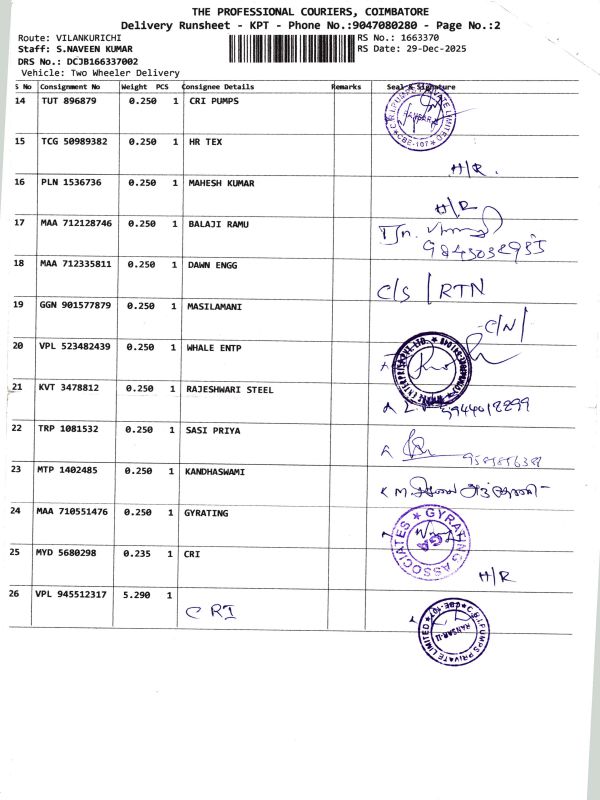 THE PROFESSIONAL COURIERS, COIMBATORE
Delivery Runsheet - KPT - Phone No.:9047080280 - Page No.:2
Route: VILANKURICHI RS No.: 1663370
Staff: S.NAVEEN KUMAR RS Date: 29-Dec-2025
DRS No.: DCJB166337002
Vehicle: Two Wheeler Delivery
S No Consignment No Weight PCS Consignee Details Remarks Seal & Signature
14 TUT 896879 0.250 1 CRI PUMPS
C.R.I.PUMPS PRIVATE LIMITED
CBE-107
15 TCG 50989382 0.250 1 HR TEX H/R.
16 PLN 1536736 0.250 1 MAHESH KUMAR H/R
17 MAA 712128746 0.250 1 BALAJI RAMU
18 MAA 712335811 0.250 1 DAWN ENGG C/S / RTN
19 GGN 901577879 0.250 1 MASILAMANI C/N/
20 VPL 523482439 0.250 1 WHALE ENTP
21 KVT 3478812 0.250 1 RAJESHWARI STEEL
22 TRP 1081532 0.250 1 SASI PRIYA
23 MTP 1402485 0.250 1 KANDHASWAMI
24 MAA 710551476 0.250 1 GYRATING
GYRATING ASSOCIATES
GA
25 MYD 5680298 0.235 1 CRI H/R
26 VPL 945512317 5.290 1 CRI
C.R.I.PUMPS PRIVATE LIMITED
CBE-107